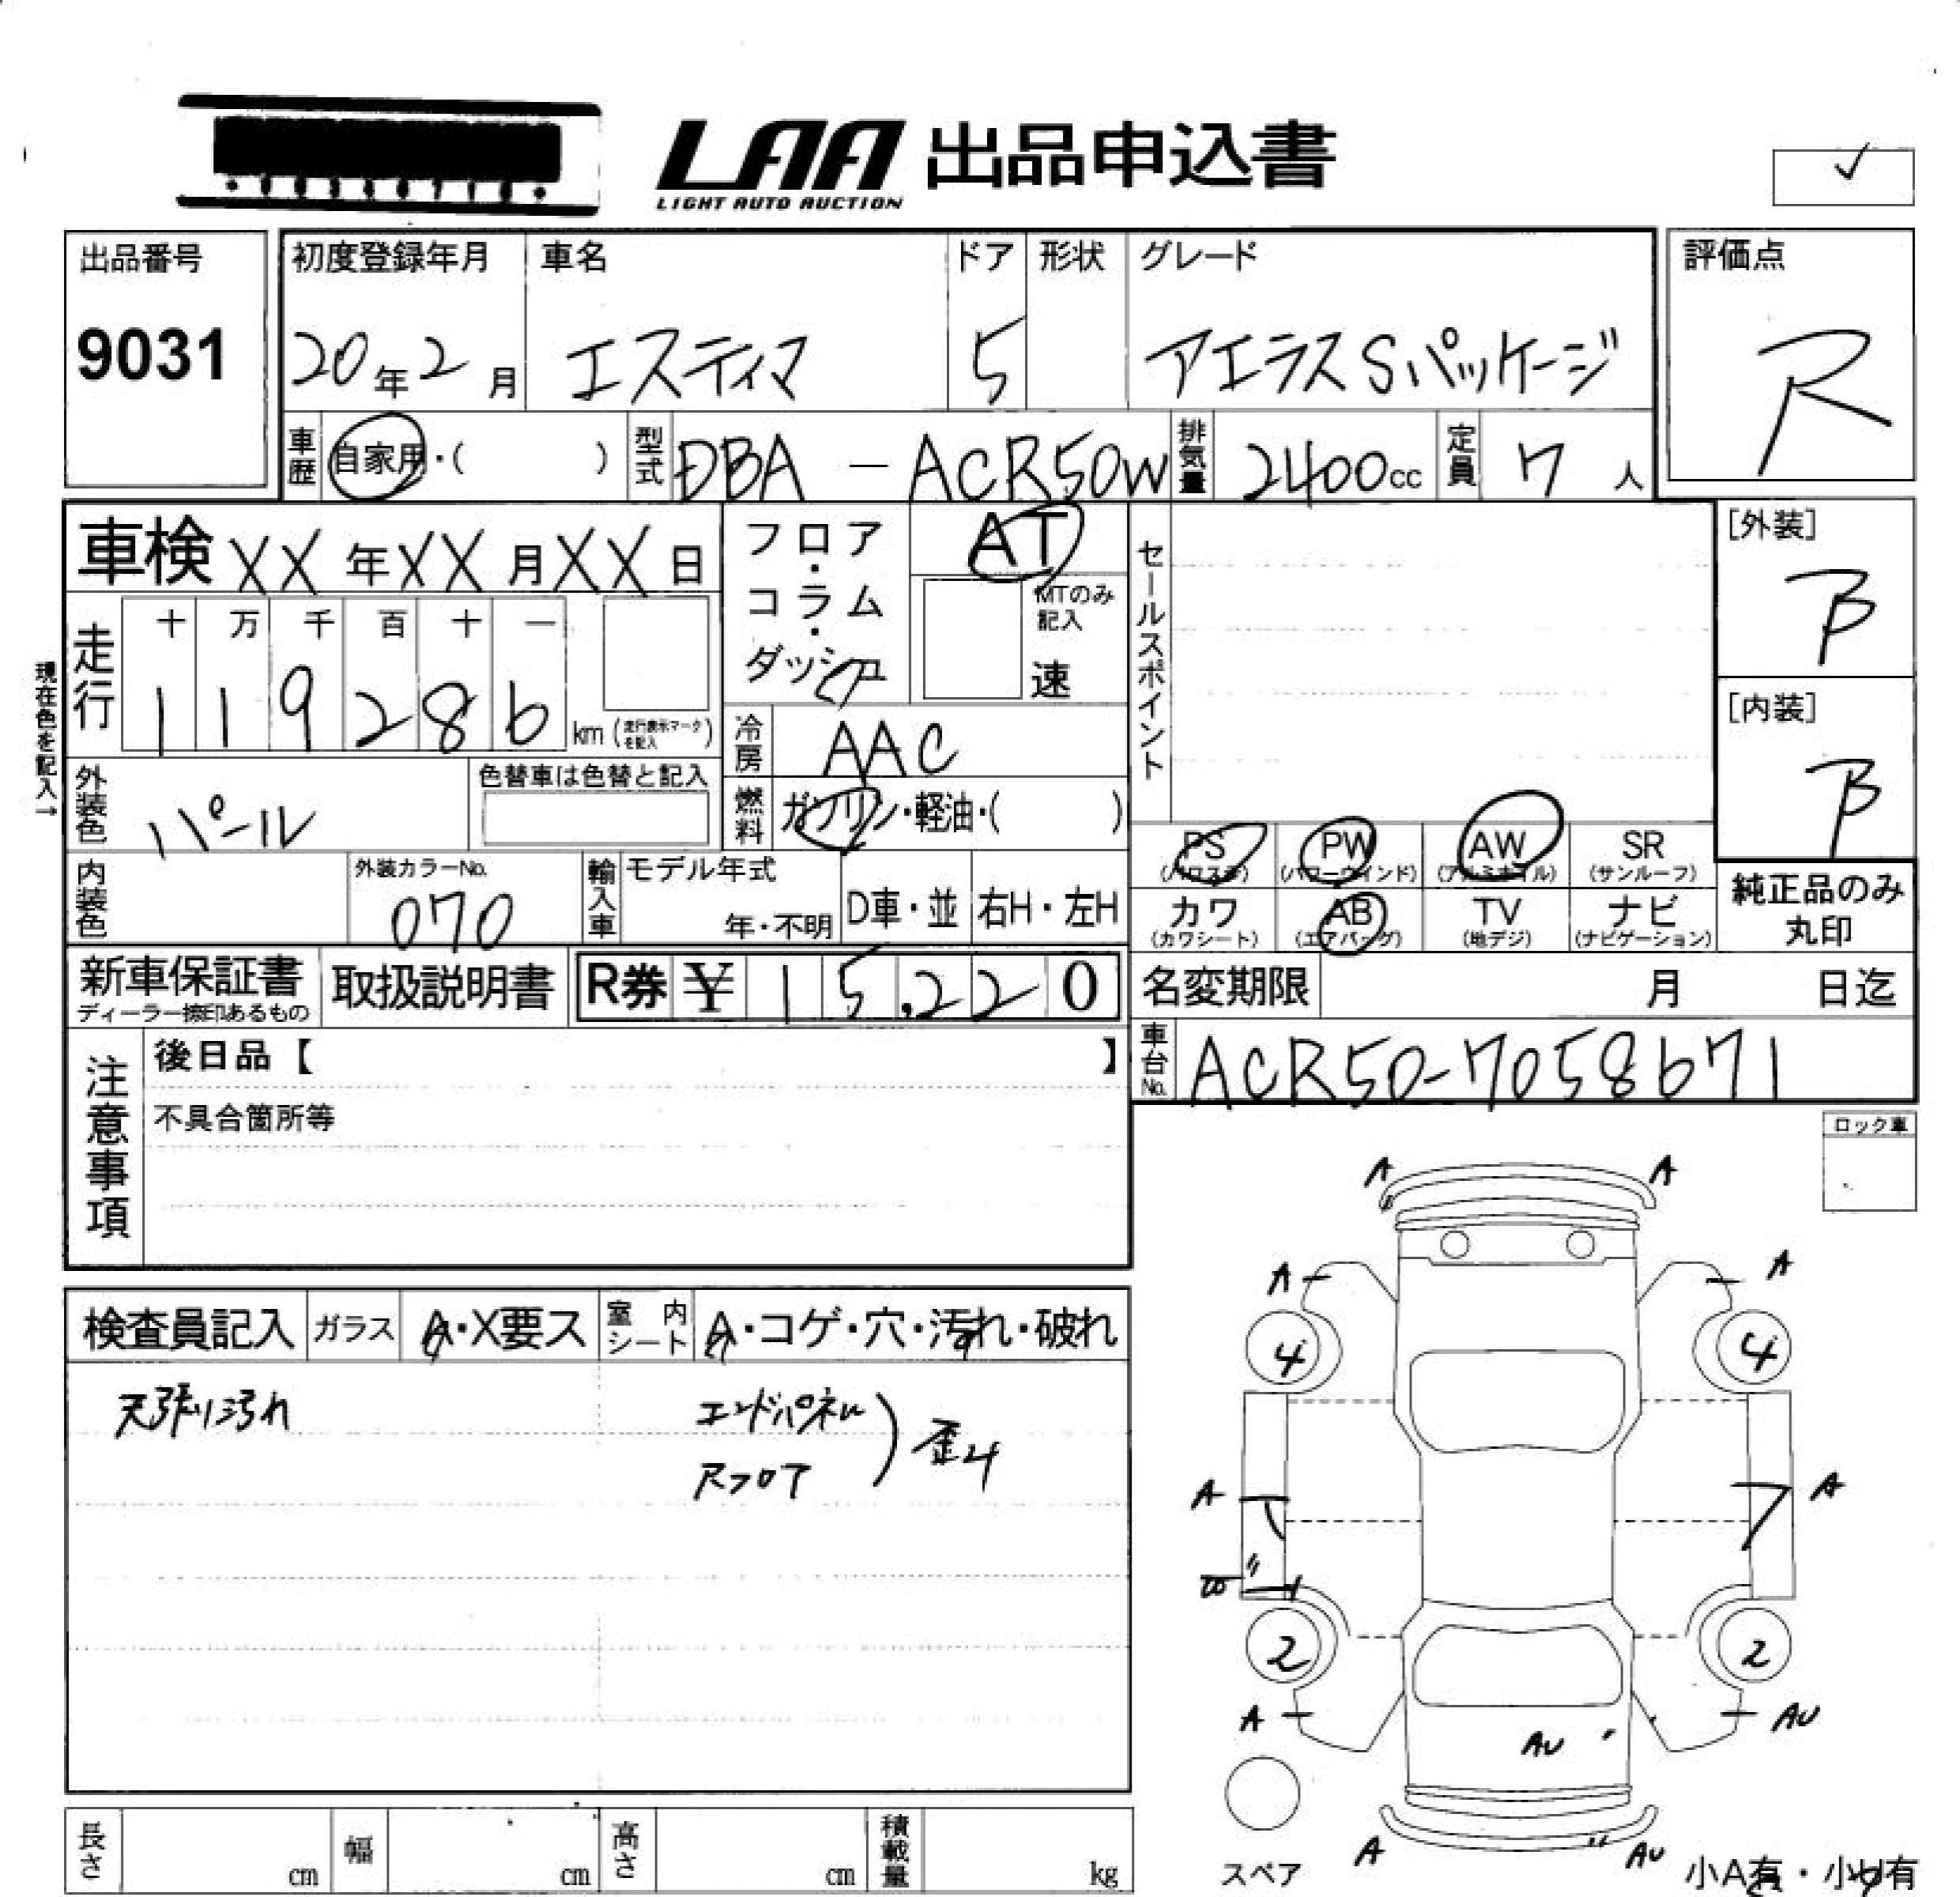 LAA 出品申込書
LIGHT AUTO AUCTION
✓
出品番号
9031
初度登録年月
20年2月
車名
エスティマ
ドア
5
形状
グレード
アエラスSパッケージ
評価点
R
車歴 自家用・( )
型式 DBA-ACR50W
排気量 2400cc
定員 7人
車検 XX年XX月XX日
フロア・コラム・ダッシュ
AT
MTのみ記入
速
セールスポイント
[外装]
B
[内装]
B
現在色を記入→
走行
十 万 千 百 十 一
1 1 9 2 8 6 km (走行表示マークを記入)
冷房 AAC
外装色 パール
色替車は色替と記入
燃料 ガソリン・軽油・( )
内装色
外装カラーNo.
070
輸入車
モデル年式
年・不明
D車・並
右H・左H
PS (パワステ)
PW (パワーウインド)
AW (アルミホイル)
SR (サンルーフ)
カワ (カワシート)
AB (エアバッグ)
TV (地デジ)
ナビ (ナビゲーション)
純正品のみ丸印
新車保証書
ディーラー捺印あるもの
取扱説明書
R券 ¥ 15,220
名変期限 月 日迄
車台No. ACR50-7058671
注意事項
後日品【 】
不具合箇所等
ロック車
検査員記入
ガラス A・X要ス
室内シート A・コゲ・穴・汚れ・破れ
天張り汚れ
エンドパネル
Rフロア
歪み
A A
A A
4 4
A A
2 2
A AU
AU
A AU
スペア
小A有・小U有
長さ cm
幅 cm
高さ cm
積載量 kg